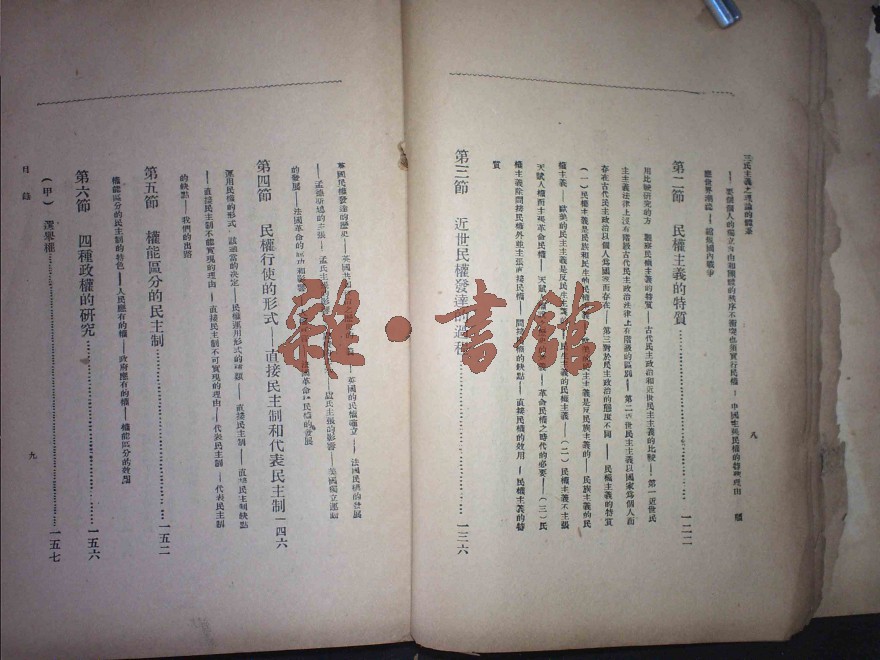 三民主義之理論的體系
八
——要個個人的獨立自由和團體的秩序不衝突也須實行民權——中國實施民權的特殊理由 順
應世界潮流——縮短國內戰爭
第二節 民權主義的特質……一二二
用比較研究的方 觀察民權主義的特質——古代民主政治和近世民主主義的比較——第一近世民
主主義法律上沒有階級古代民主政治法律上有階級的區別——第二近世民主主義以國家為個人而
存在古代民主政治以個人為國家而存在——第三對於民主政治的態度不同——民權主義的特質
(一)民權主義是民族和民生的民權主義 民主主義是反民族主義的——民族主義的民
權主義——歐美的民主主義是反民生主義 民生主義的民權主義——(二)民權主義不主張
天賦人權而主張革命民權——天賦 革命民權之時代的必要——(三)民
權主義除間接民權外並主張直接民權——間接民權的缺點——直接民權的效用——民權主義的特
質
第三節 近世民權發達的過程……一三六
英國民權發達的歷史——英國 英國的民權確立——法國民權的發展
——孟德斯鳩的主張——孟氏主張的影響 盧氏主張的影響——美國獨立運動
的發展——法國革命的 和影響 法國革命 民權的發展
第四節 民權行使的形式——直接民主制和代表民主制一四六
運用民權的形式 該適當的決定——民權運用形式的種類——直接民主制——直接民主制缺點
——直接民主制不能實現的理由——直接民主制不可實現的理由——代表民主制——代表民主制
的缺點——我們的出路
第五節 權能區分的民主制……一五二
權能區分的民主制的特色——人民應有的權——政府應有的權——權能區分的效用
第六節 四種政權的研究……一五六
(甲)選舉權……一五七
目錄
九
雜·書館